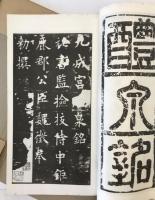 醴泉銘
九成宮醴泉銘
秘書監撿挍侍中鉅
鹿郡公臣魏徵奉
勅撰